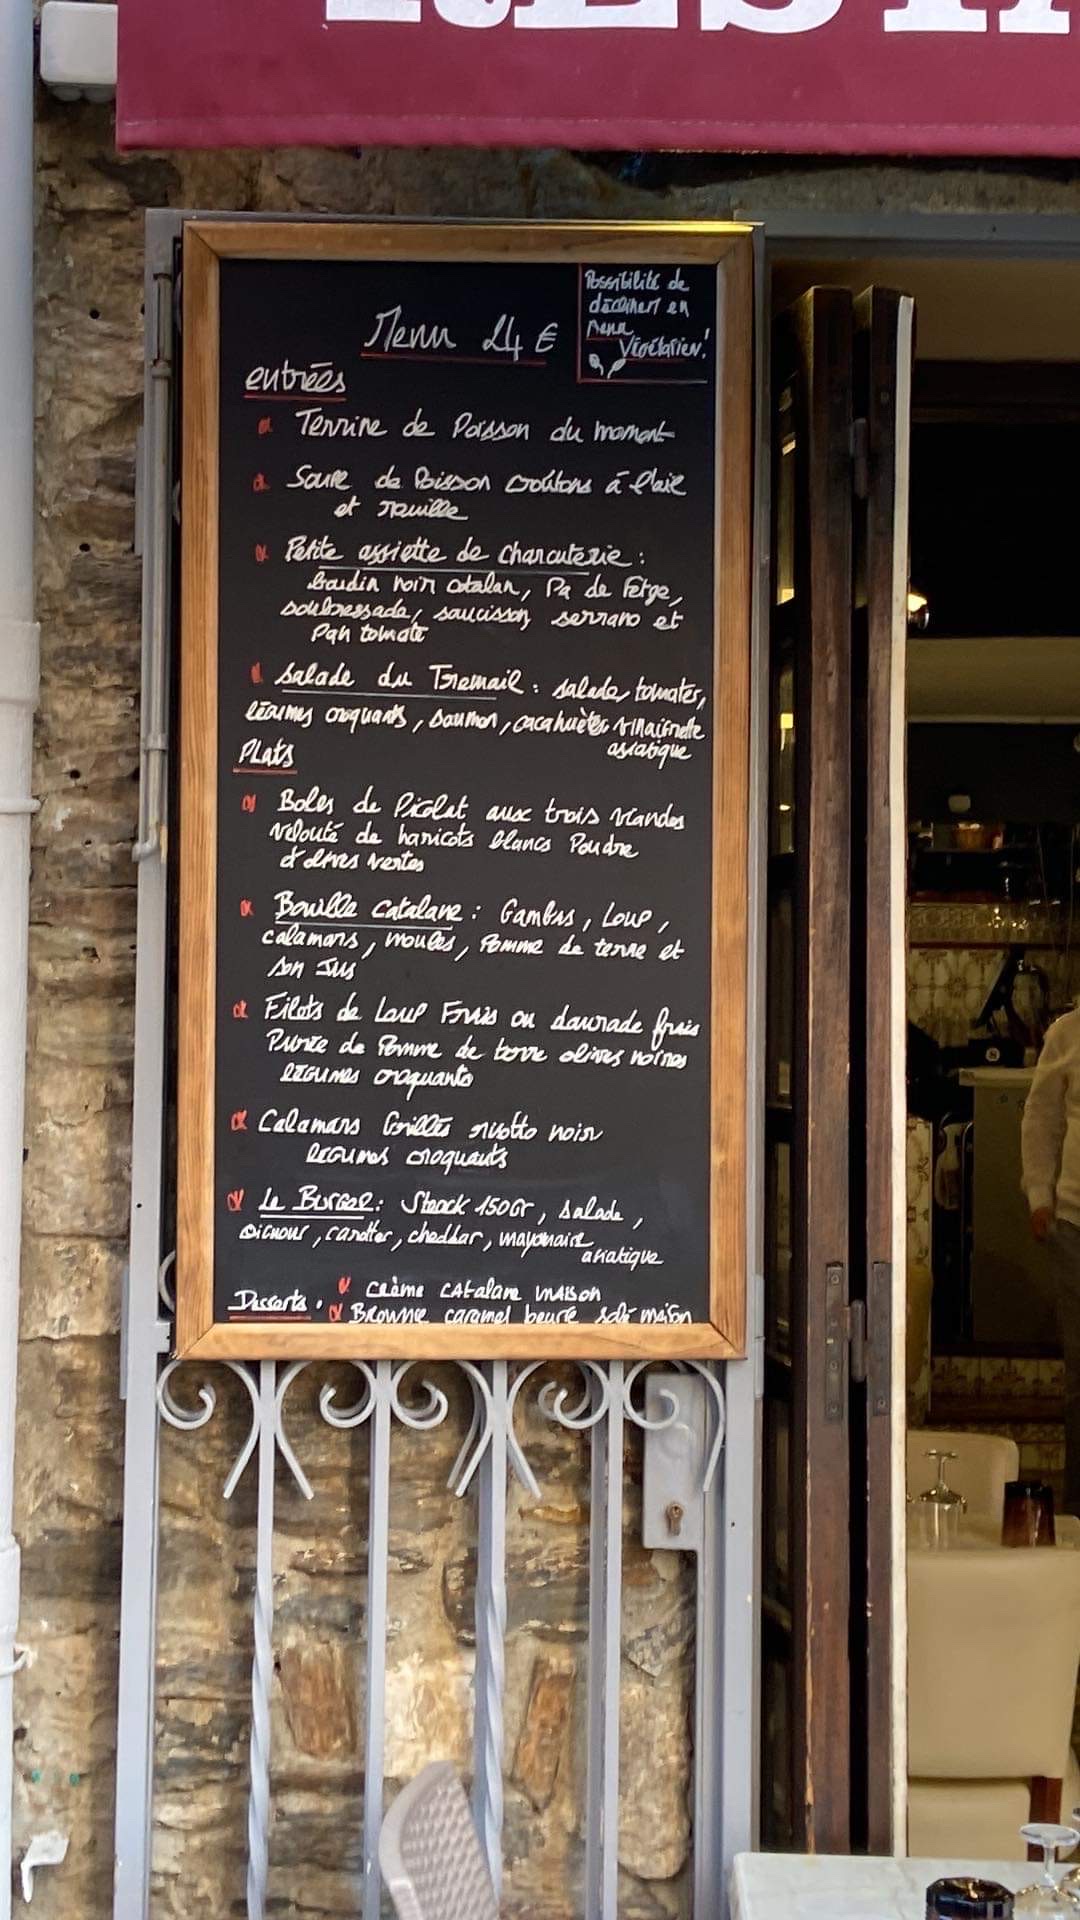 REST
Possibilité de
décliner en
menu
Végétarien!
Menu 24 €
entrées
Terrine de Poisson du moment
Soupe de Poisson croûtons à l'ail
et rouille
Petite assiette de charcuterie :
boudin noir catalan, Pa de Fetge,
soubressade, saucisson, serrano et
Pan tomate
Salade du Tremail : salade, tomates,
légumes croquants, saumon, cacahuètes vinaigrette
asiatique
Plats
Boles de Picolat aux trois viandes
velouté de haricots blancs Poudre
d'olives vertes
Bouille Catalane : Gambas, Loup,
calamars, moules, Pomme de terre et
son Jus
Filets de Loup Frais ou daurade frais
Purée de Pomme de terre olives noires
légumes croquants
Calamars Grillés risotto noir
légumes croquants
Le Burger : Steack 150Gr, salade,
oignons, cheddar, mayonaise
asiatique
Desserts : crème catalane maison
Brownie caramel beurre salé maison